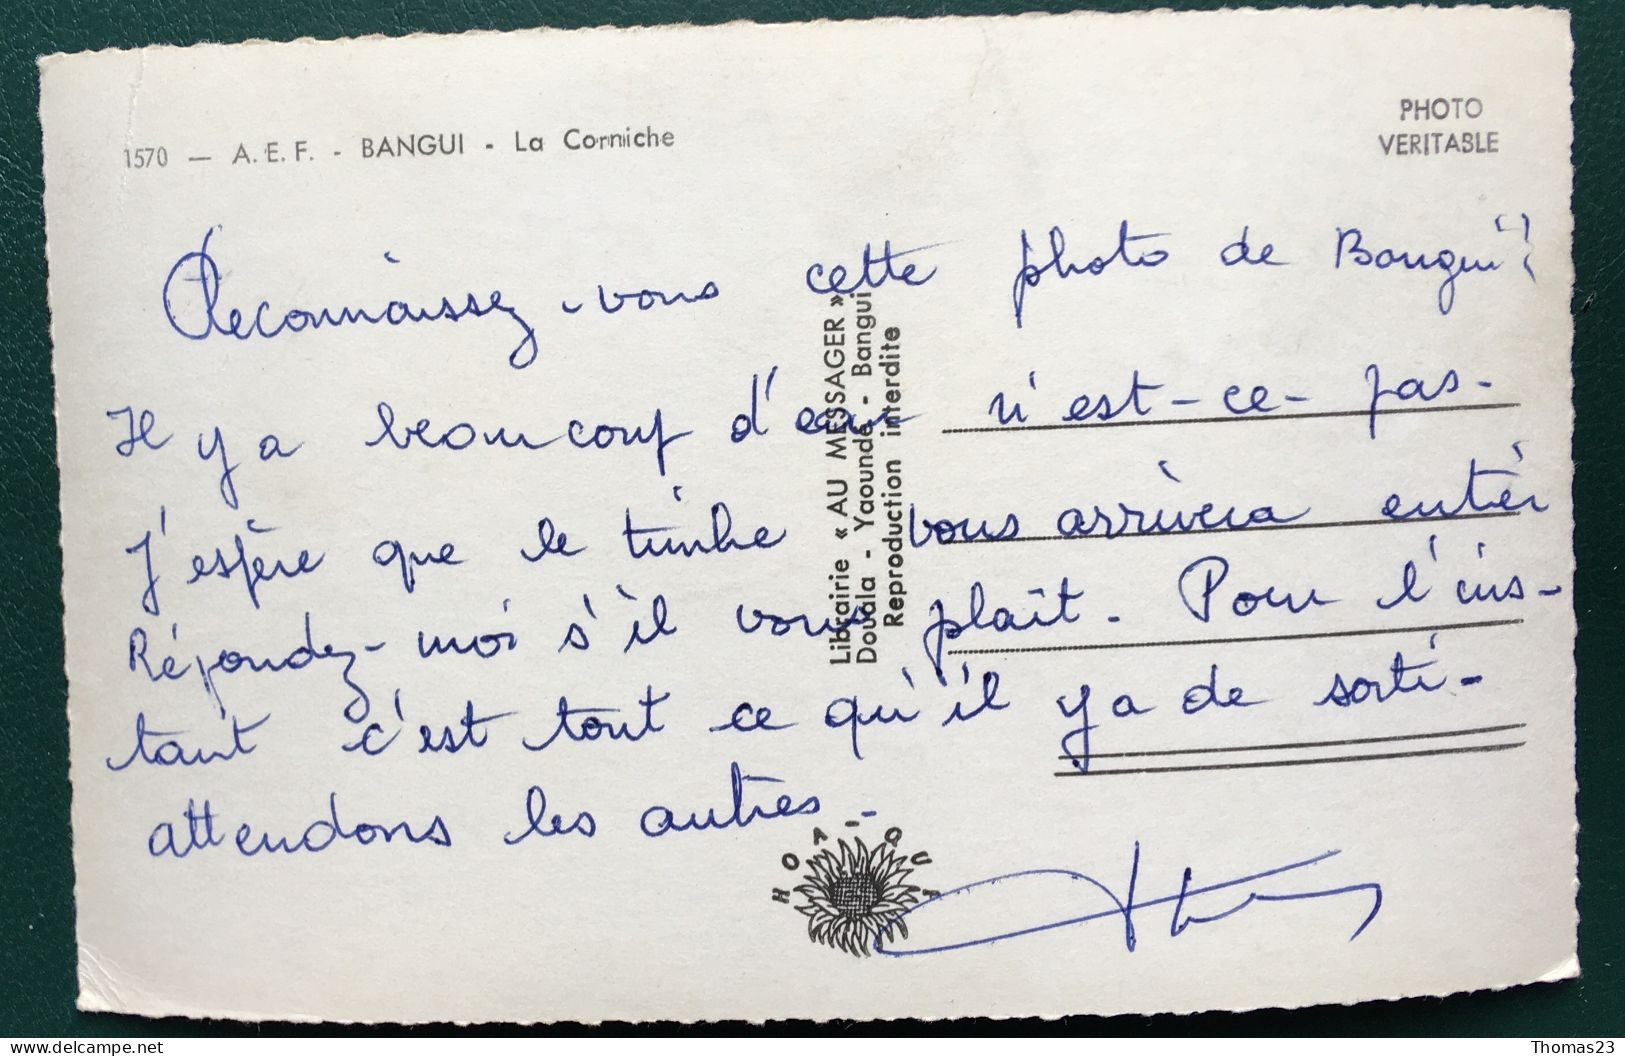 1570 — A. E. F. - BANGUI - La Corniche
PHOTO
VERITABLE
Reconnaissez-vous cette photo de Bangui?
Il y a beaucoup d'eau n'est-ce-pas-
J'espère que le timbre vous arrivera entier
Répondez-moi s'il vous plaît. Pour l'ins-
tant c'est tout ce qu'il y a de sorti-
attendons les autres-
Librairie « AU MESSAGER »
Douala - Yaoundé - Bangui
Reproduction interdite
HOA-QUI
Thomas23